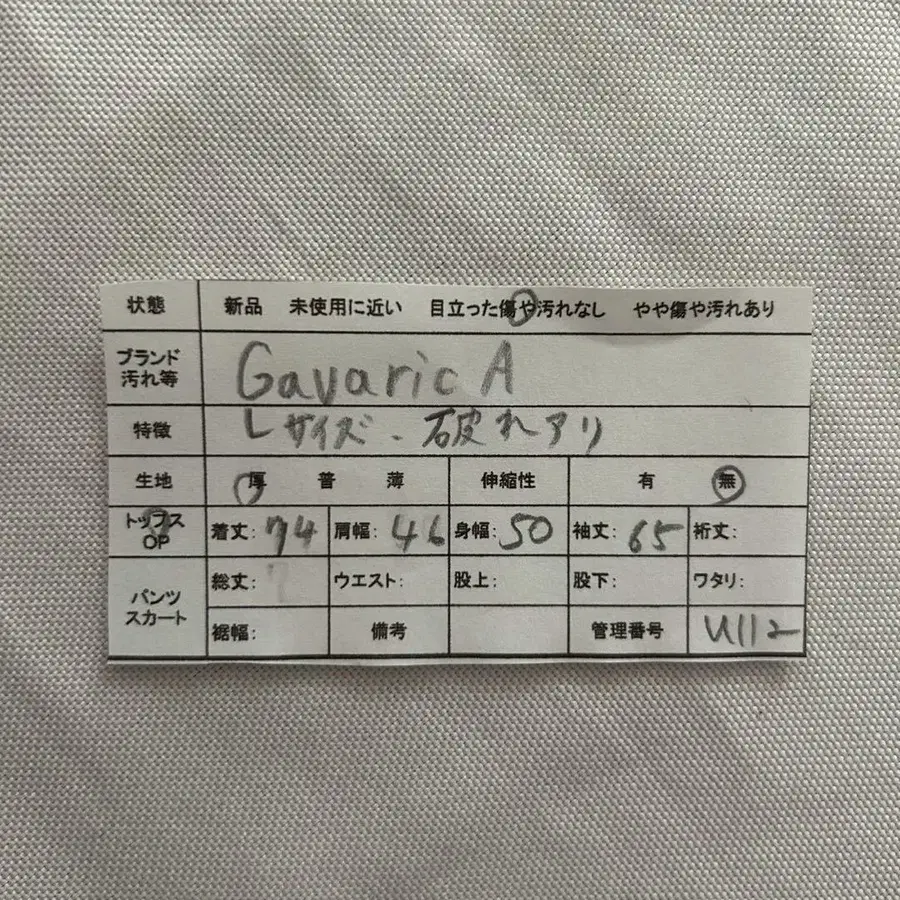 状態 新品 未使用に近い 目立った傷や汚れなし やや傷や汚れあり
ブランド 汚れ等 Gavaric A
特徴 Lサイズ・破れアリ
生地 厚 普 薄 伸縮性 有 無
トップス OP 着丈:74 肩幅:46 身幅:50 袖丈:65 裄丈:
パンツ スカート 総丈:7 ウエスト: 股上: 股下: ワタリ:
裾幅: 備考 管理番号 U112